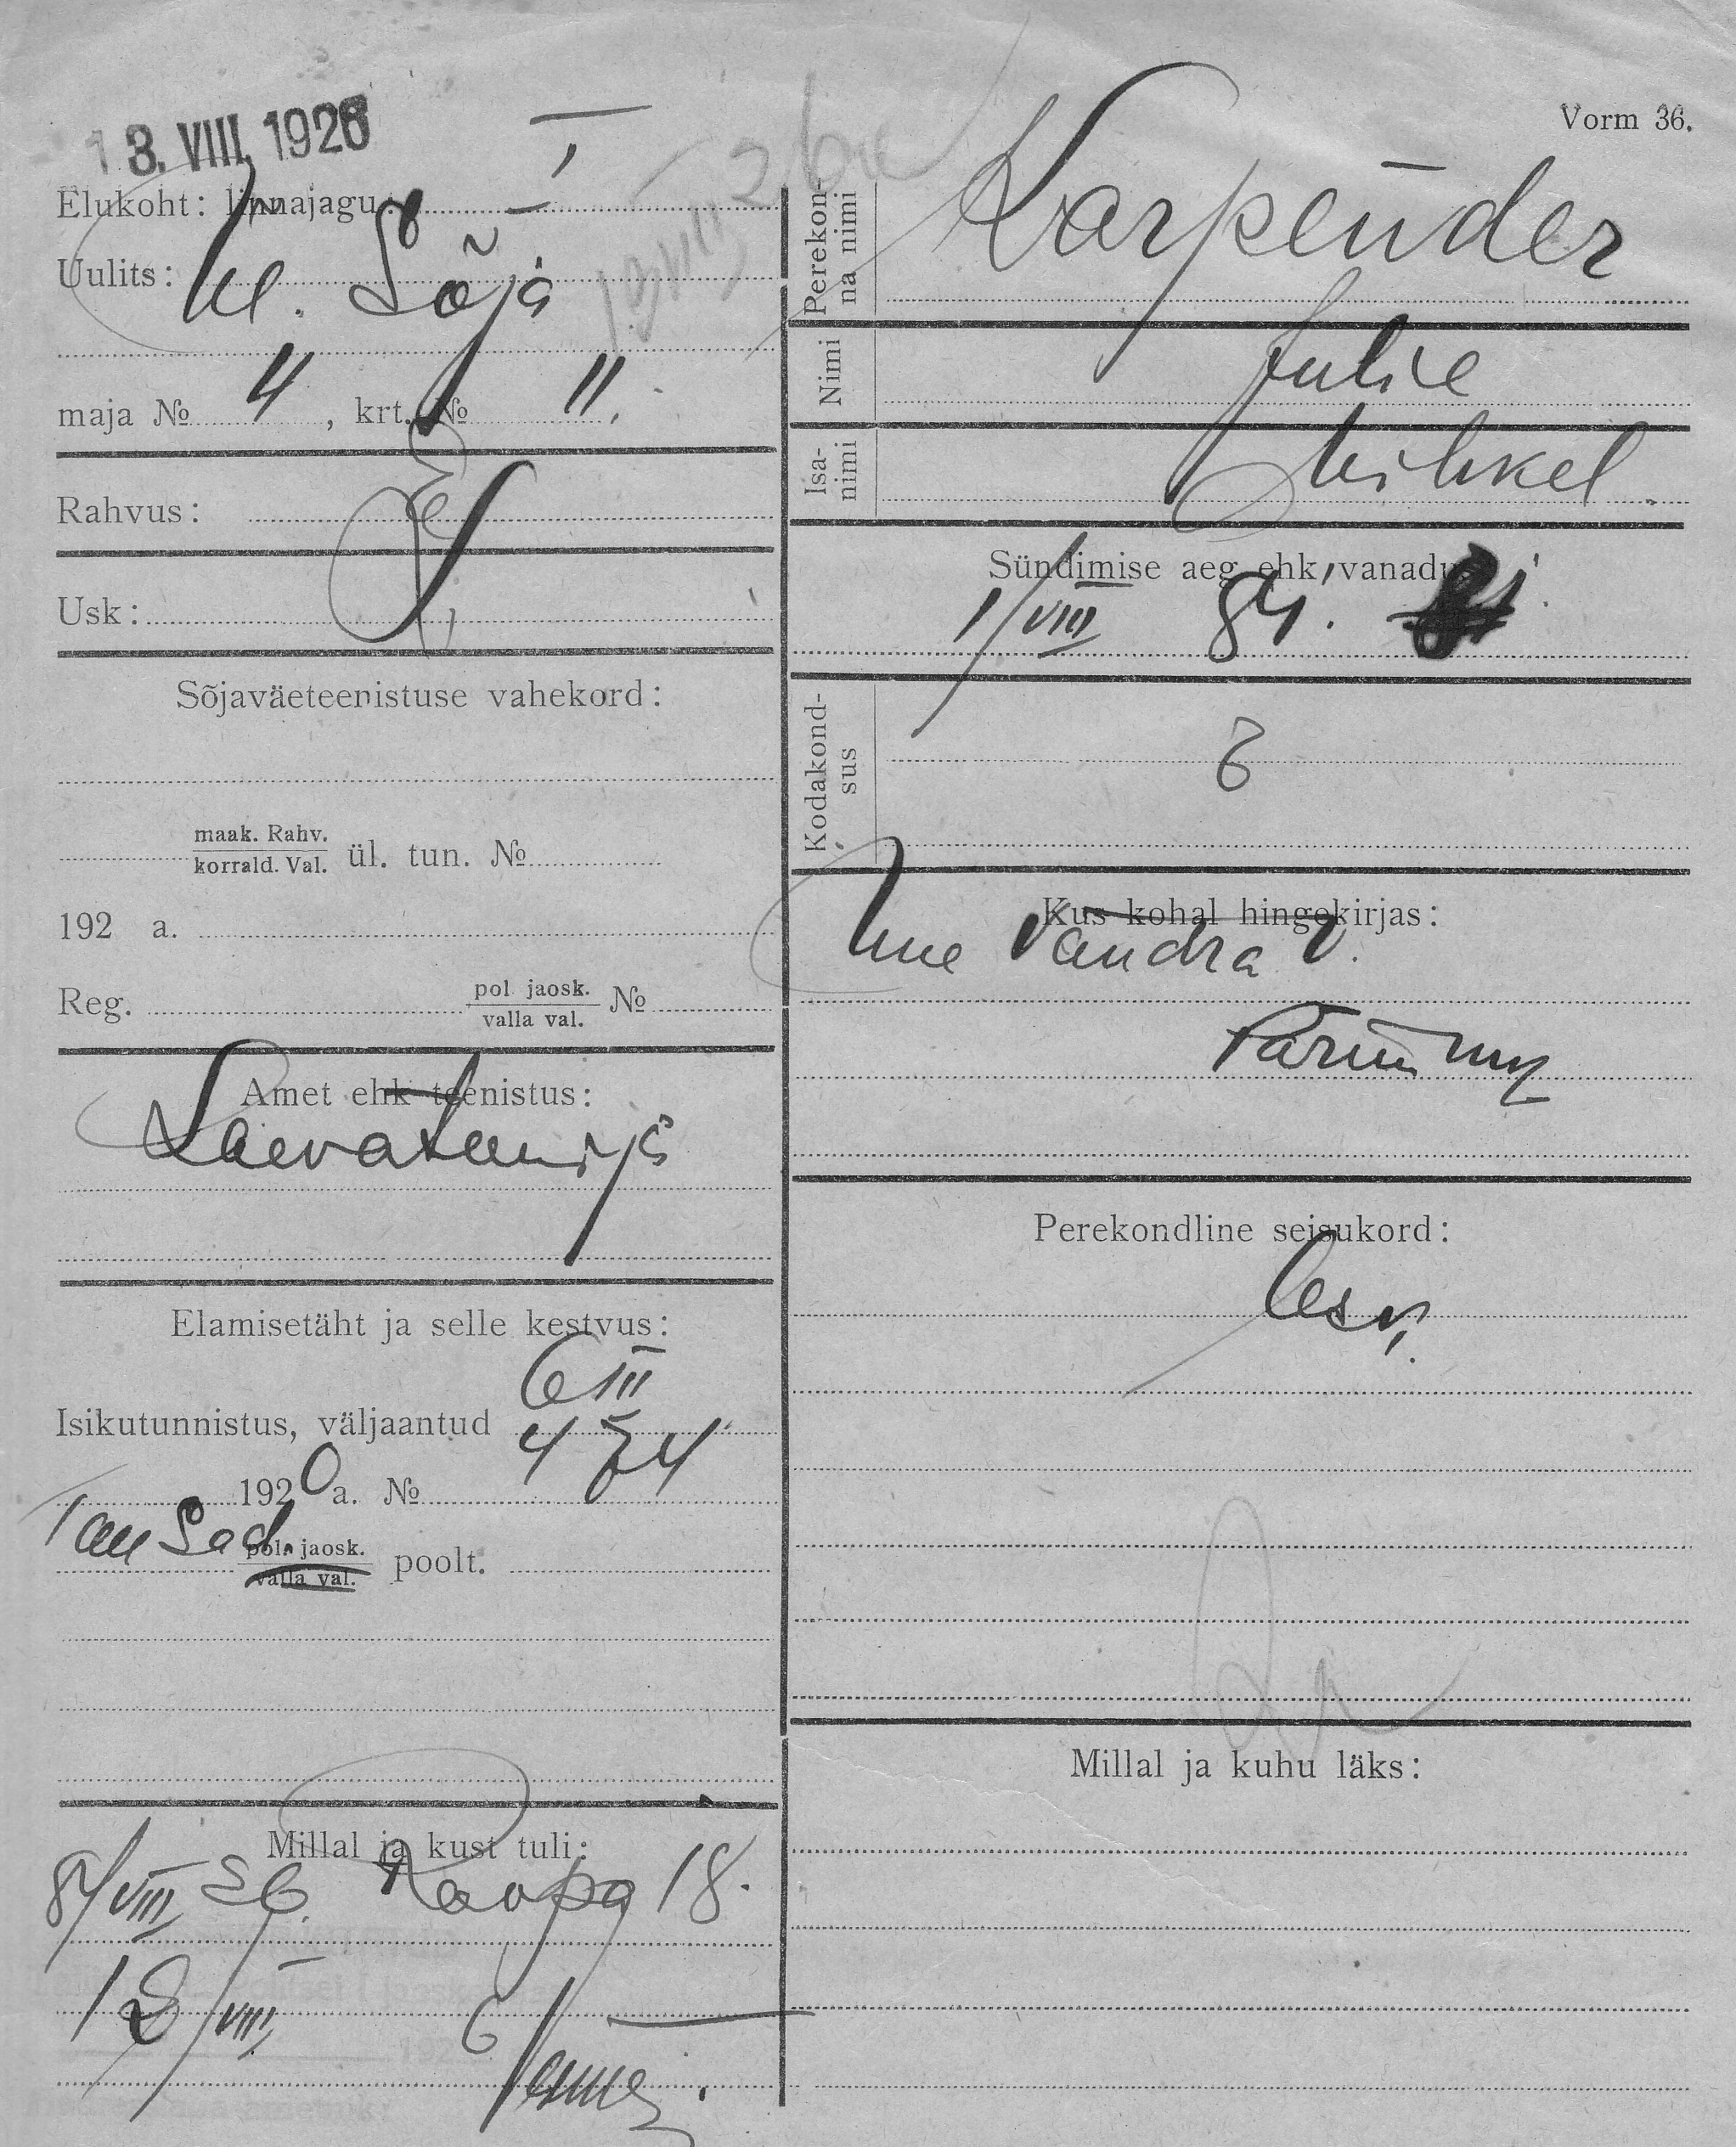 13. VIII 1926
I
Elukoht: linnajagu:
Uulits: W. Sõja
maja № 4, krt. № 11.
Rahvus: E
Usk:
Sõjaväeteenistuse vahekord:
maak. Rahv.
korrald. Val. ül. tun. №
192 a.
Reg. pol jaosk.
valla val. №
Amet ehk teenistus:
Laevateenija
Elamisetäht ja selle kestvus:
6 III
Isikutunnistus, väljaantud
1920 a. № 474
pol. jaosk.
valla val. poolt.
Millal ja kust tuli:
8/VIII 26. Kaupa 18.
12/VIII
Vorm 36.
Perekon-
na nimi Karpender
Nimi Julie
Isa-
nimi Mihkel.
Sündimise aeg ehk vanadus:
1/VIII 84.
Kodakond-
sus
Kus kohal hingekirjas:
Uue Vändra v.
Pärnu m
Perekondline seisukord:
Lesk.
Millal ja kuhu läks: